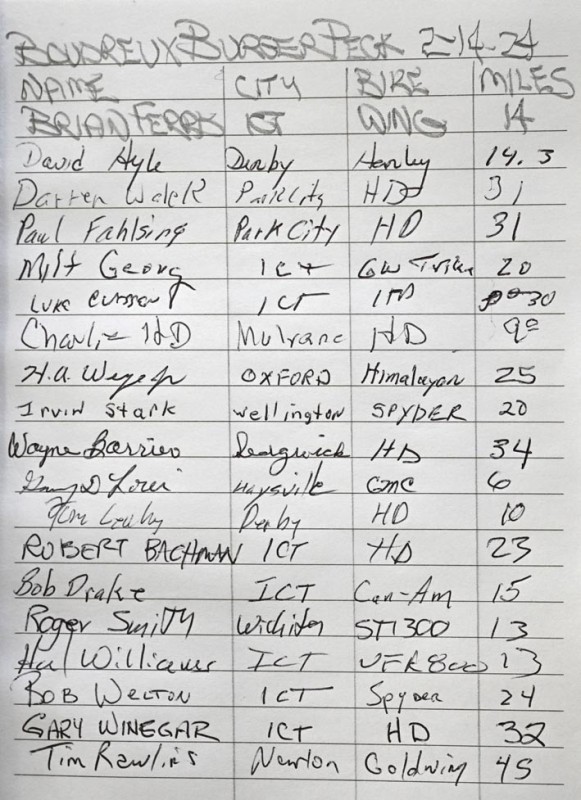 BOUDREUX BURGER PECK 2-14-24
NAME CITY BIKE MILES
BRIAN FERRK ICT WING 14
David Hyle Derby Harley 14.3
Darren Park City HD 31
Paul Fahlsing Park City HD 31
Milt Georg ICT GW Trike 20
LUKE ICT HD 30
Charlie HD Mulvane HD
H.A. OXFORD Himalayan 25
Irvin Stark Wellington SPYDER 20
Wayne Barrien Sedgwick HD 34
Haysville GMC 6
Derby HD 10
ROBERT BACHMAN ICT HD 23
Bob Drake ICT Can-Am 15
Roger Smith Wichita ST1300 13
Hal Williams ICT VFR800 13
BOB WELTON ICT Spyder 24
GARY WINEGAR ICT HD 32
Tim Rawlins Newton Goldwing 45